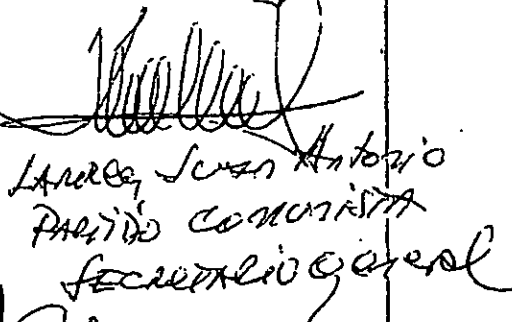 Juan Antonio
PARTIDO COMUNISTA
SECRETARIO general